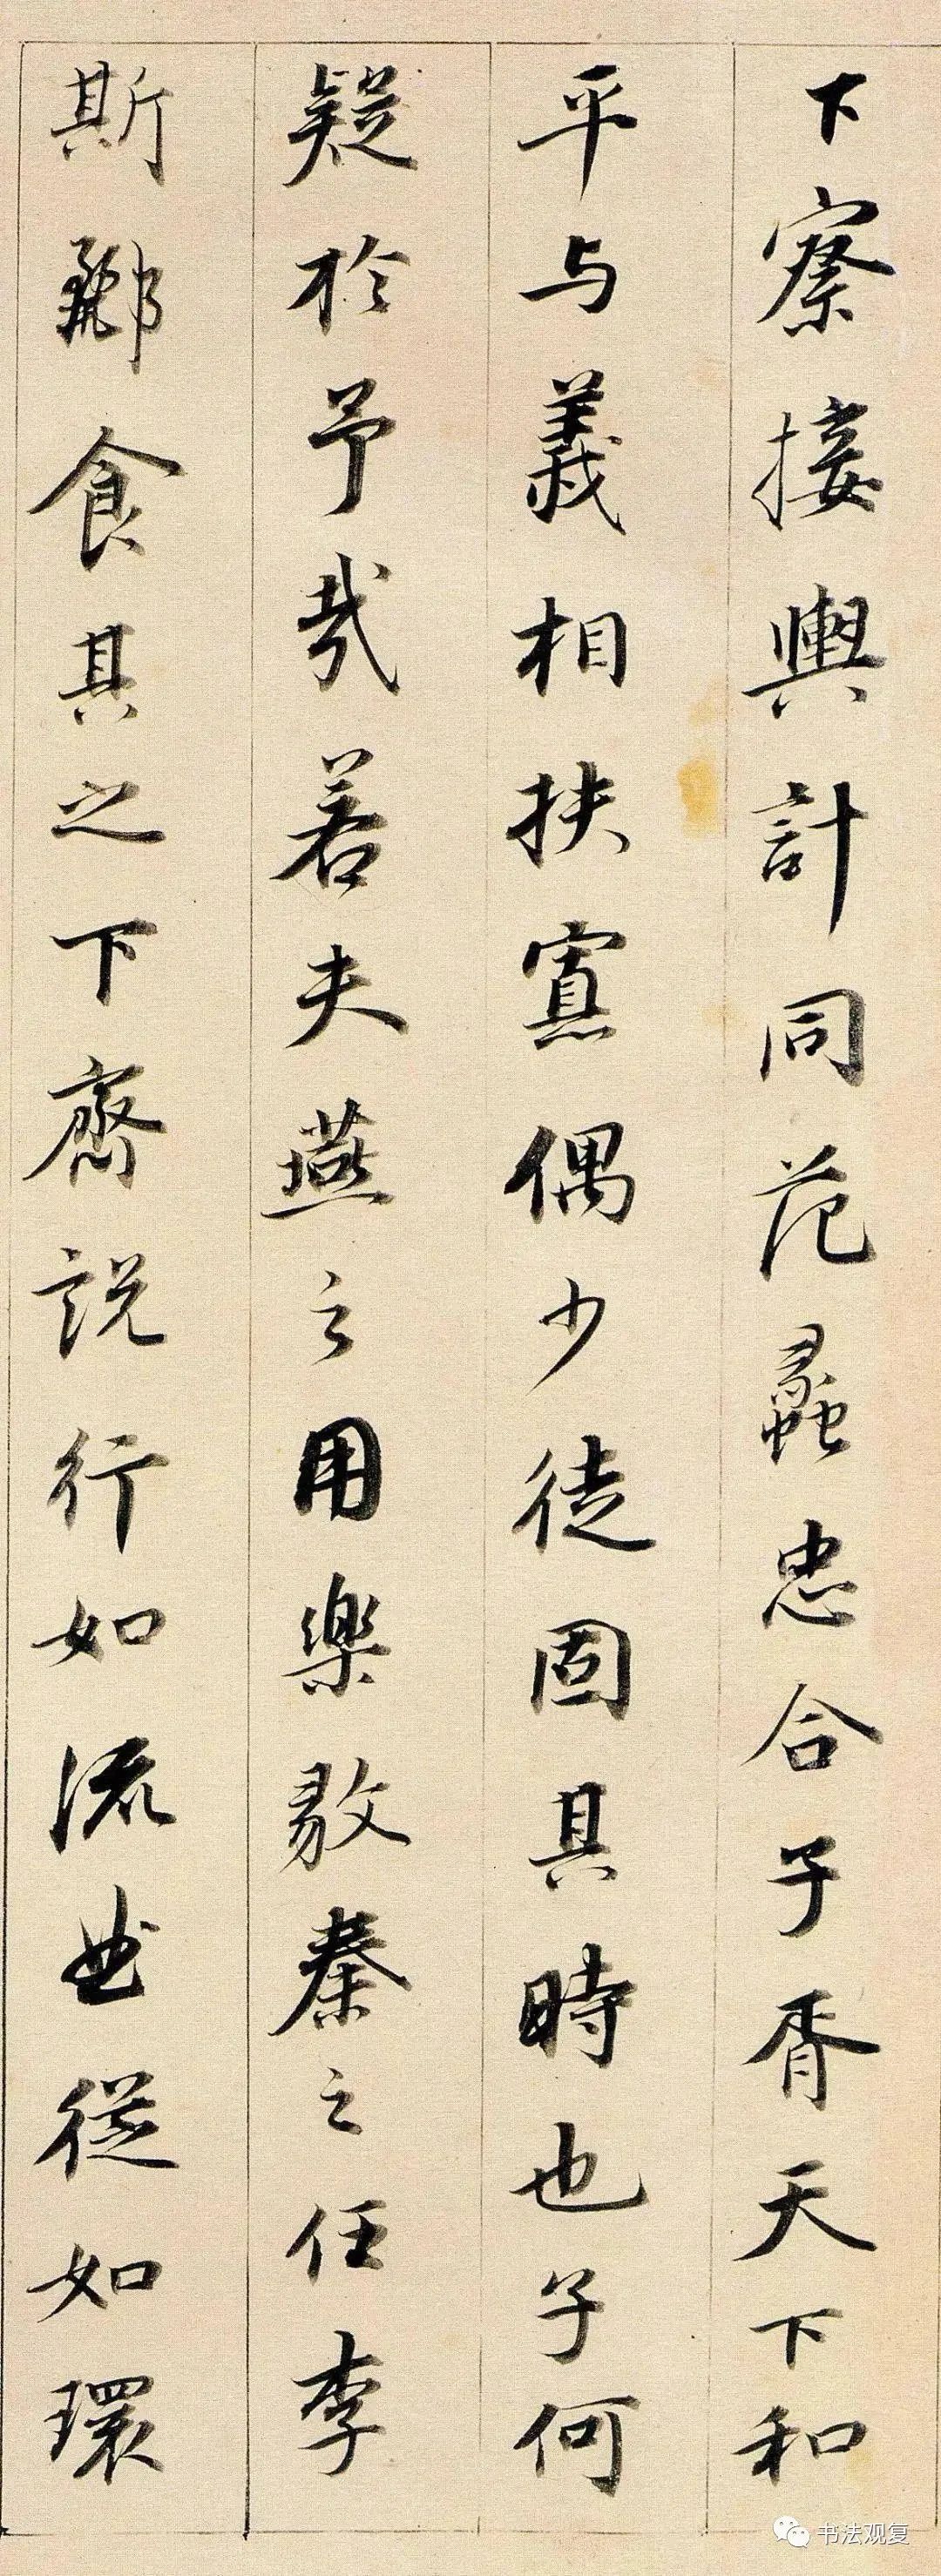 下察接輿計同范蠡忠合子胥天下和
平与義相扶寡偶少徒固其時也子何
疑於予哉若夫燕之用樂毅秦之任李
斯酈食其之下齊說行如流曲從如環
书法观复